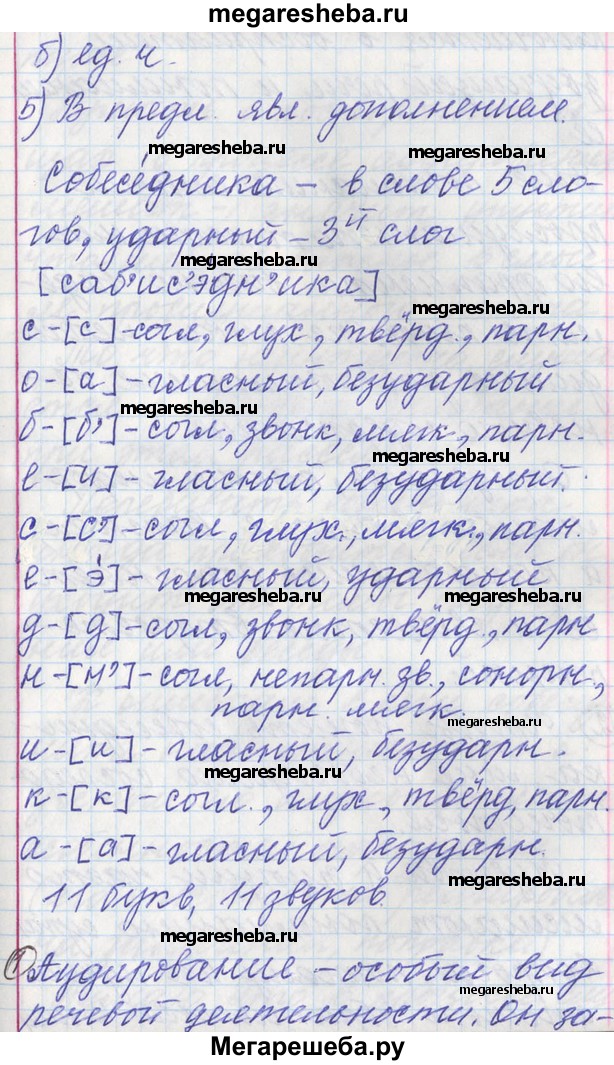 megaresheba.ru
б) ед. ч.
5) В предл. явл. дополнением.
megaresheba.ru
Собесе́дника – в слове 5 сло-
megaresheba.ru
гов, ударный – 3ий слог
[саб'ис'эдн'ика]
megaresheba.ru
с – [с] – согл, глух, твёрд., парн.
о – [а] – гласный, безударный
megaresheba.ru
б – [б'] – согл, звонк, мягк, парн.
megaresheba.ru
е – [и] – гласный, безударный.
с – [с'] – согл, глух., мягк., парн.
е – [э́] – гласный, ударный
megaresheba.ru megaresheba.ru
д – [д] – согл, звонк, твёрд., парн
н – [н'] – согл, непарн. зв., сонорн.,
парн. мягк.
megaresheba.ru
и – [и] – гласный, безударн.
megaresheba.ru
к – [к] – согл., глух, твёрд, парн.
а – [а] – гласный, безударн.
11 букв, 11 звуков.
megaresheba.ru
1 Аудирование – особый вид
megaresheba.ru
речевой деятельности. Он за-
megaresheba.ru
Мегарешеба.ру